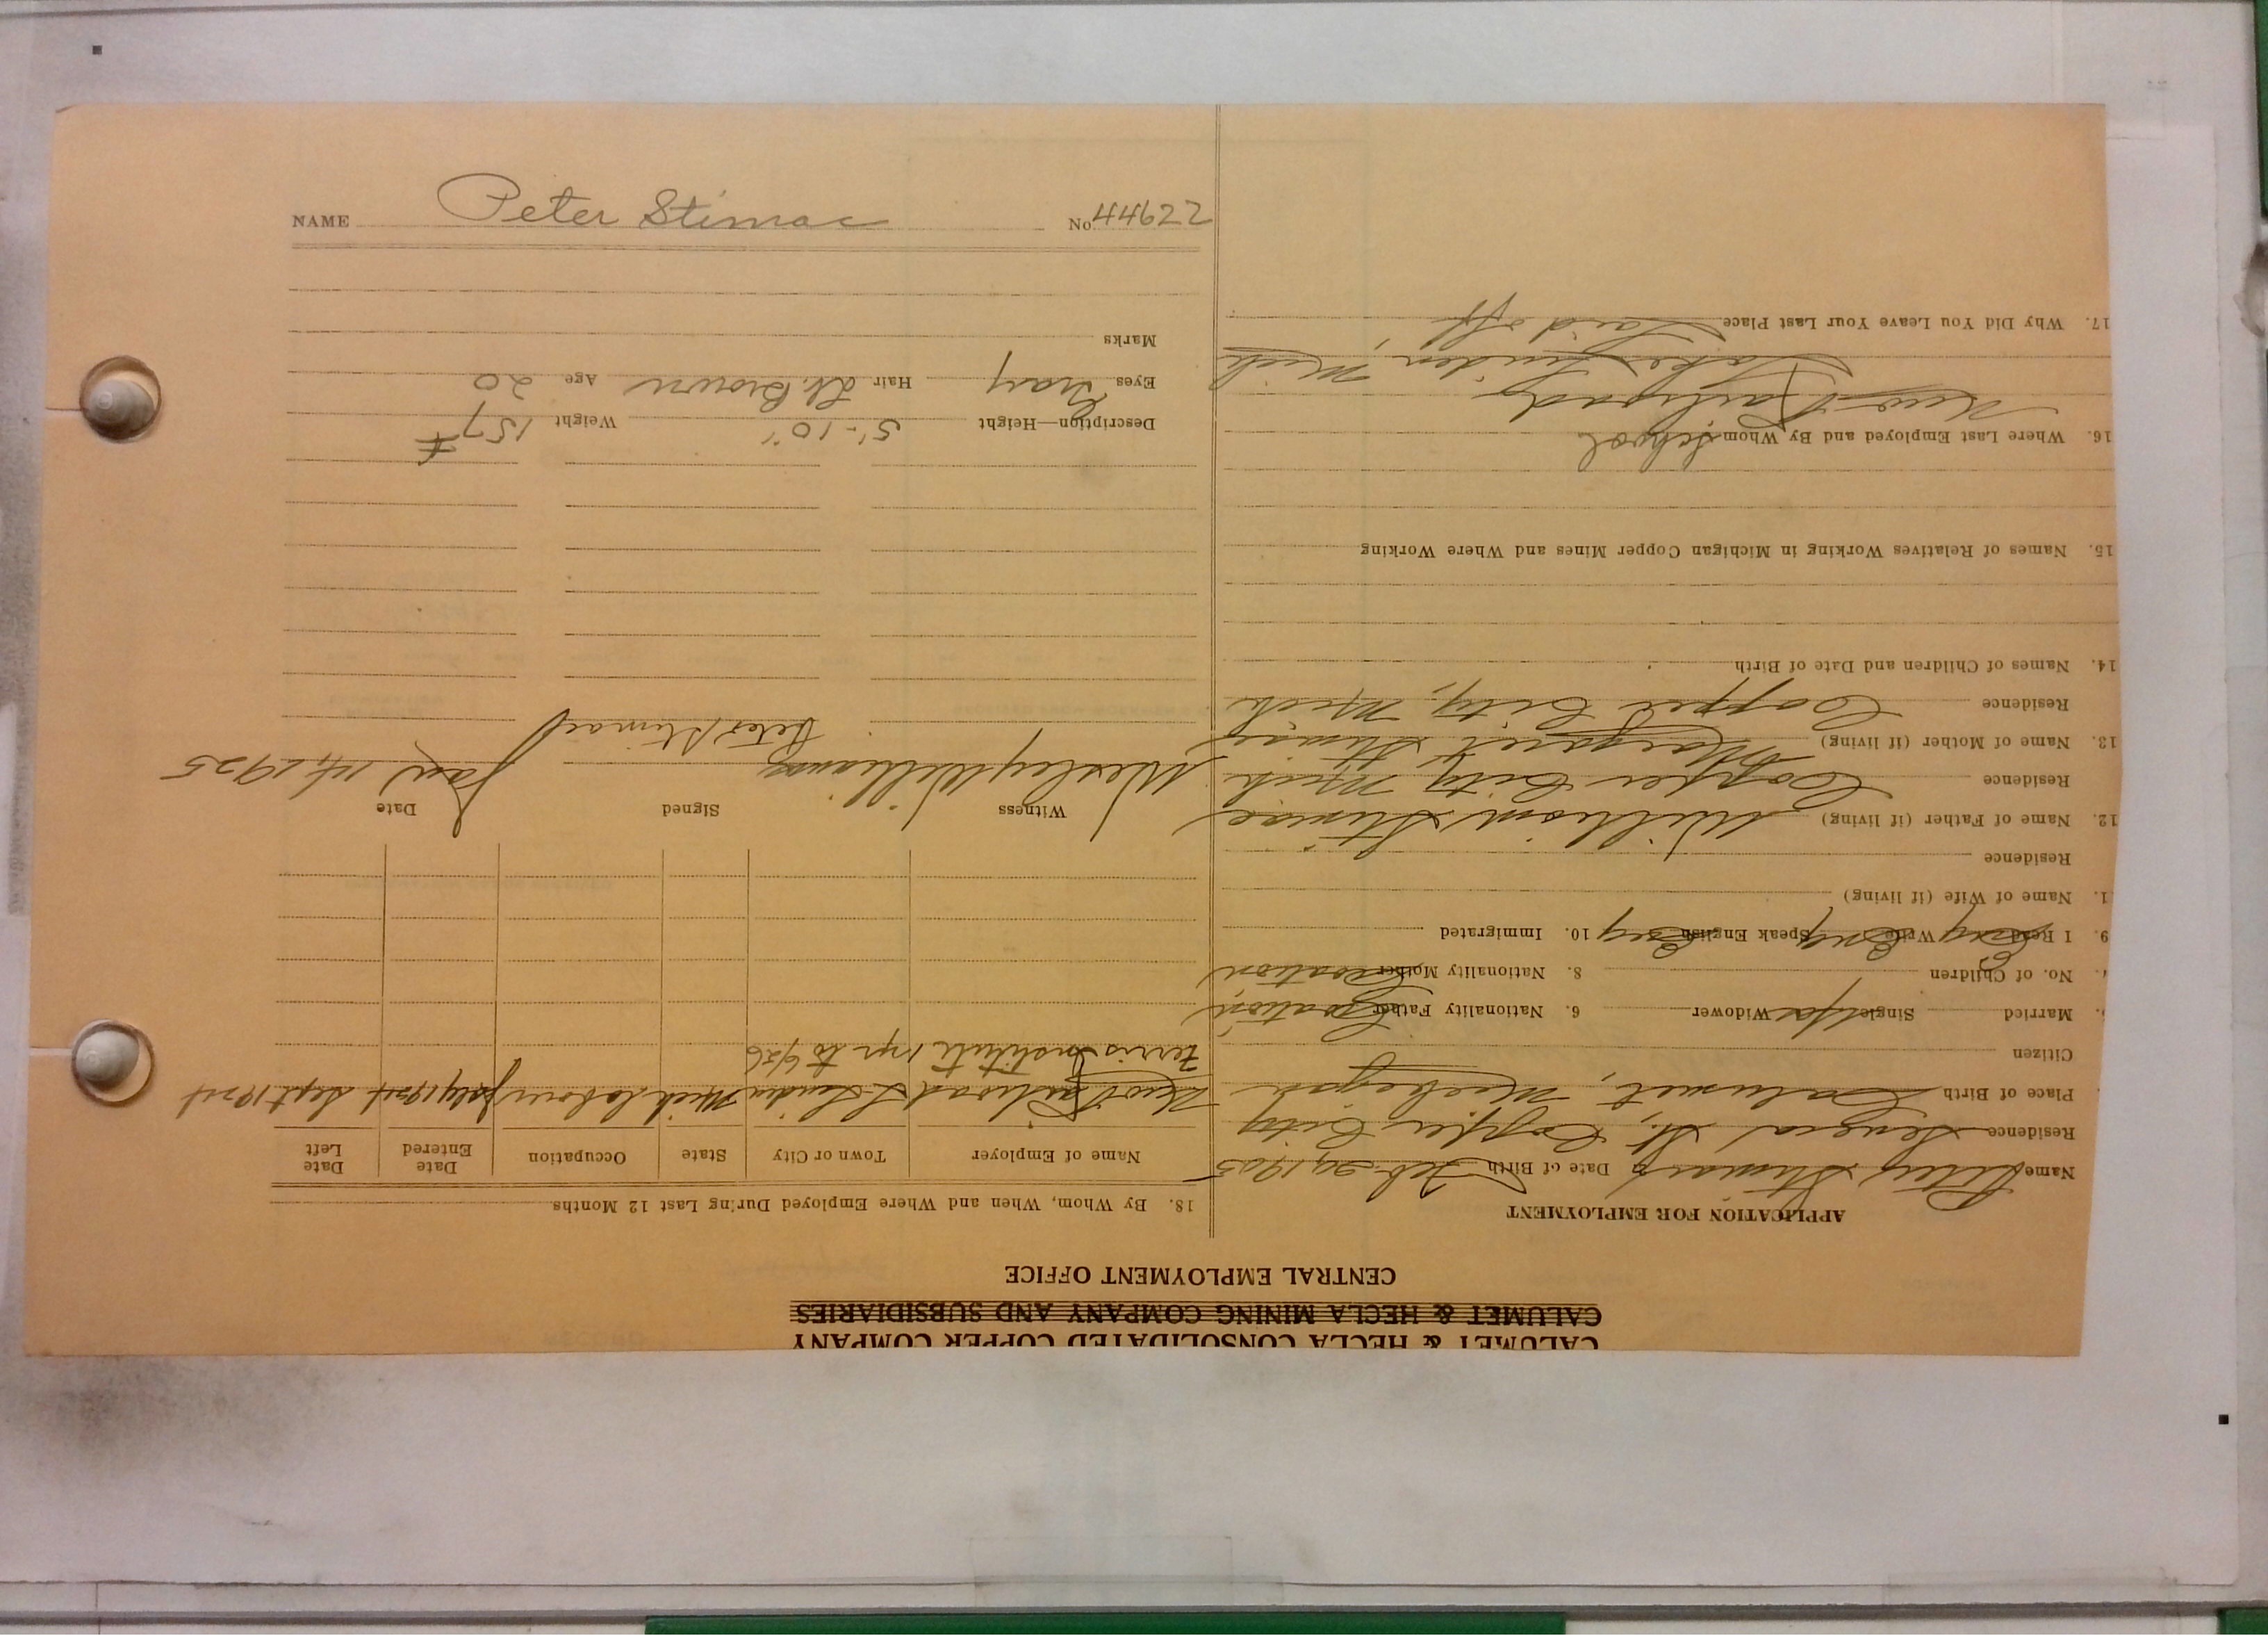 NAME Peter Stimac No 44622
CALUMET & HECLA CONSOLIDATED COPPER COMPANY
CALUMET & HECLA MINING COMPANY AND SUBSIDIARIES
CENTRAL EMPLOYMENT OFFICE
APPLICATION FOR EMPLOYMENT
Name Peter Stimac Date of Birth Feb. 29, 1905
Residence St. Copper City
Place of Birth Calumet, Michigan
Citizen
Married Single Yes Widower 6. Nationality Father Croation
No. of Children 8. Nationality Mother Croation
9. I Read Eng Write Eng Speak English Eng 10. Immigrated
1. Name of Wife (if living)
Residence
12. Name of Father (if living) William Stimac
Residence Copper City Mich
13. Name of Mother (if living) Margaret Stimac
Residence Copper City, Mich
14. Names of Children and Date of Birth
15. Names of Relatives Working in Michigan Copper Mines and Where Working
16. Where Last Employed and By Whom School
Lake Linden, Mich
17. Why Did You Leave Your Last Place Laid off
18. By Whom, When and Where Employed During Last 12 Months
Name of Employer Town or City State Occupation Date Entered Date Left
L. Linden Mich laborer July 1924 Sept 1924
Ferris Institute 1 yr to 6/26
Witness Signed Date
Wesley Williams Peter Stimac Jan 14, 1925
Description—Height 5'-10" Weight 157 #
Eyes Gray Hair Lt. Brown Age 20
Marks